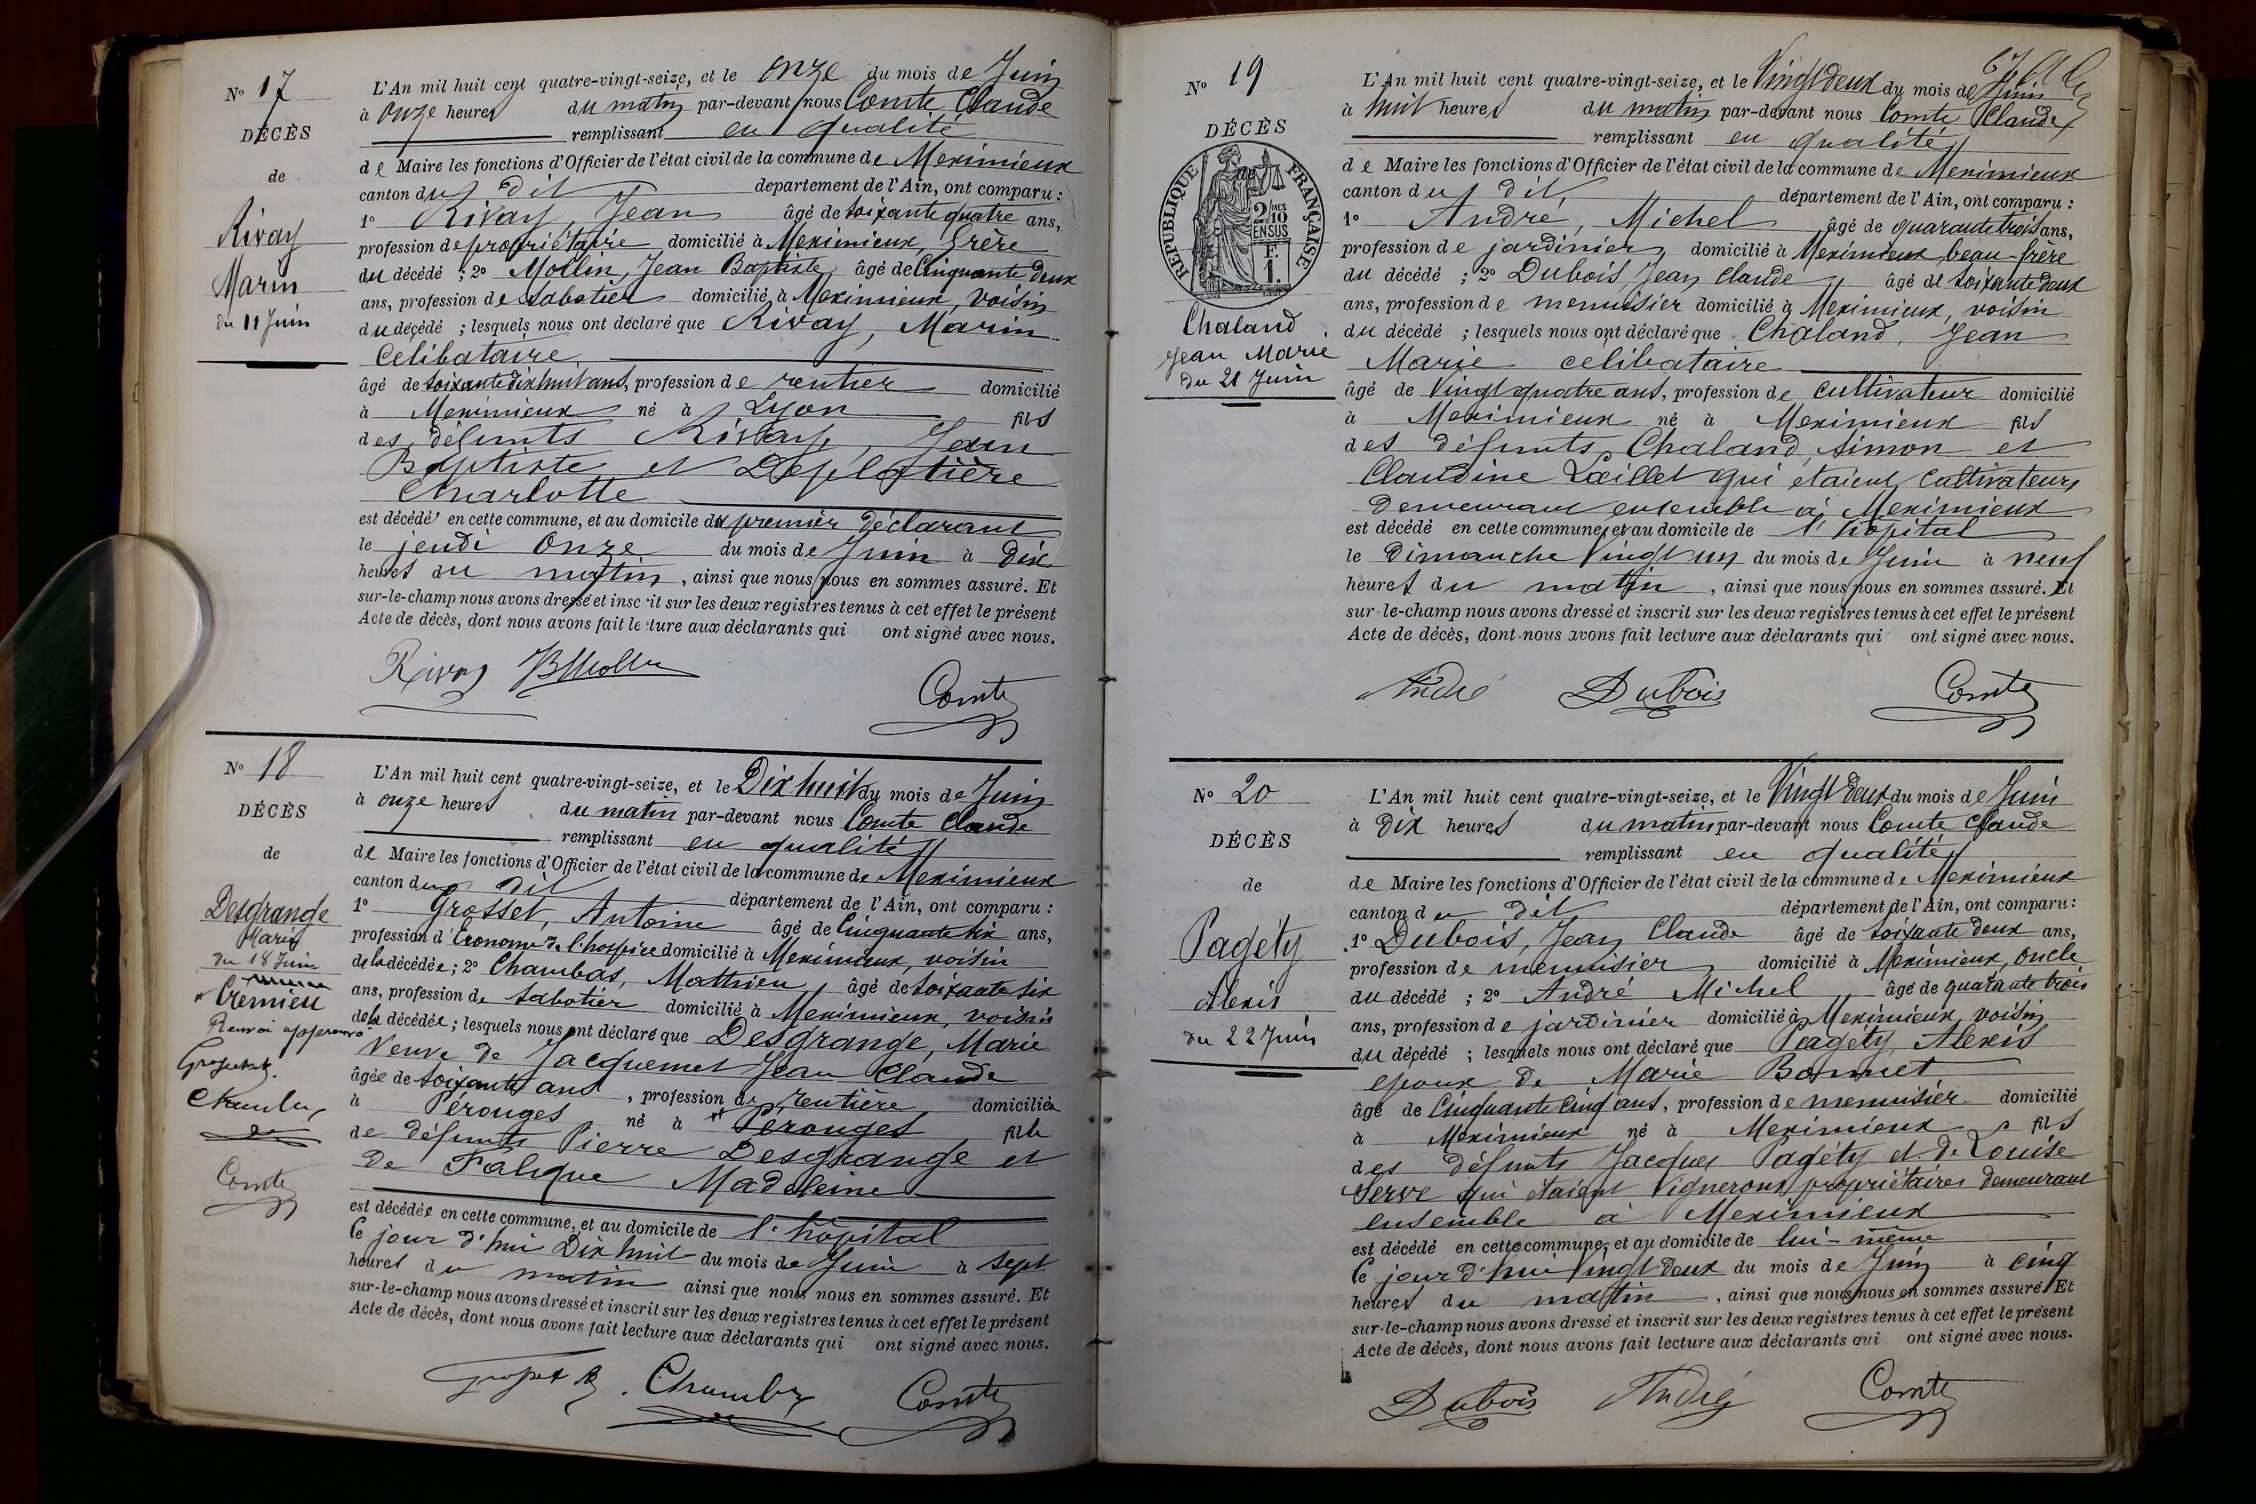 N° 17
DÉCÈS
de
Rivay
Marin
du 11 Juin
L'An mil huit cent quatre-vingt-seize, et le onze du mois de Juin
à onze heures du matin par-devant nous Comte Claude
remplissant en qualité
de Maire les fonctions d'Officier de l'état civil de la commune de Meximieux
canton du dit département de l'Ain, ont comparu :
1° Rivay, Jean âgé de soixante quatre ans,
profession de propriétaire domicilié à Meximieux, frère
du décédé ; 2° Mollin, Jean Baptiste, âgé de Cinquante deux
ans, profession de sabotier domicilié à Meximieux, voisin
du décédé ; lesquels nous ont déclaré que Rivay, Marin
Celibataire
âgé de soixante dix huit ans, profession de rentier domicilié
à Meximieux né à Lyon fils
des défunts Rivay, Jean
Baptiste et Deplatière
Charlotte
est décédé en cette commune, et au domicile du premier déclarant
le jeudi onze du mois de Juin à Dix
heures du matin, ainsi que nous nous en sommes assuré. Et
sur-le-champ nous avons dressé et inscrit sur les deux registres tenus à cet effet le présent
Acte de décès, dont nous avons fait lecture aux déclarants qui ont signé avec nous.
Rivay BMollin
Comte
N° 18
DÉCÈS
de
Desgrange
Marie
du 18 Juin
Cremieu
Renvoi approuvé
Comte
L'An mil huit cent quatre-vingt-seize, et le Dix huit du mois de Juin
à onze heures du matin par-devant nous Comte Claude
remplissant en qualité
de Maire les fonctions d'Officier de l'état civil de la commune de Meximieux
canton du dit département de l'Ain, ont comparu :
1° Grosset, Antoine âgé de Cinquante six ans,
profession d'Econome de l'hospice domicilié à Meximieux, voisin
de la décédée ; 2° Chambas, Mathieu, âgé de soixante six
ans, profession de sabotier domicilié à Meximieux, voisin
de la décédée ; lesquels nous ont déclaré que Desgrange, Marie
Veuve de Jacquemet Jean Claude
âgée de soixante ans, profession de rentière domiciliée
à Pérouges né à Pérouges fille
de défunts Pierre Desgrange et
de Falique Madeleine
est décédée en cette commune, et au domicile de l'hôpital
Ce jour d'hui Dix huit du mois de Juin à sept
heures du matin ainsi que nous nous en sommes assuré. Et
sur-le-champ nous avons dressé et inscrit sur les deux registres tenus à cet effet le présent
Acte de décès, dont nous avons fait lecture aux déclarants qui ont signé avec nous.
Comte
N° 19
DÉCÈS
de
RÉPUBLIQUE FRANÇAISE
2/10 MES EN SUS
F. 1.
Chaland
Jean Marie
du 21 Juin
L'An mil huit cent quatre-vingt-seize, et le Vingt deux du mois de Juin
à huit heures du matin par-devant nous Comte Claude
remplissant en qualité
de Maire les fonctions d'Officier de l'état civil de la commune de Meximieux
canton du dit département de l'Ain, ont comparu :
1° André, Michel âgé de quarante trois ans,
profession de jardinier domicilié à Meximieux beau-frère
du décédé ; 2° Dubois, Jean Claude âgé de soixante deux
ans, profession de menuisier domicilié à Meximieux, voisin
du décédé ; lesquels nous ont déclaré que Chaland, Jean
Marie celibataire
âgé de Vingt quatre ans, profession de cultivateur domicilié
à Meximieux né à Meximieux fils
des défunts Chaland, Simon et
Claudine Loeillet qui étaient Cultivateurs
demeurant ensemble à Meximieux
est décédé en cette commune, et au domicile de l'hôpital
le Dimanche Vingt un du mois de Juin à neuf
heures du matin, ainsi que nous nous en sommes assuré. Et
sur-le-champ nous avons dressé et inscrit sur les deux registres tenus à cet effet le présent
Acte de décès, dont nous avons fait lecture aux déclarants qui ont signé avec nous.
André Dubois Comte
N° 20
DÉCÈS
de
Pagéty
Alexis
du 22 Juin
L'An mil huit cent quatre-vingt-seize, et le Vingt deux du mois de Juin
à Dix heures du matin par-devant nous Comte Claude
remplissant en qualité
de Maire les fonctions d'Officier de l'état civil de la commune de Meximieux
canton du dit département de l'Ain, ont comparu :
1° Dubois, Jean Claude âgé de soixante deux ans,
profession de menuisier domicilié à Meximieux, oncle
du décédé ; 2° André Michel âgé de quarante trois
ans, profession de jardinier domicilié à Meximieux, voisin
du décédé ; lesquels nous ont déclaré que Pagéty Alexis
epoux de Marie Bonnet
âgé de Cinquante Cinq ans, profession de menuisier domicilié
à Meximieux né à Meximieux fils
des défunts Jacques Pagéty et de Louise
Serve qui étaient Vignerons propriétaires demeurant
ensemble à Meximieux
est décédé en cette commune, et au domicile de lui-même
Ce jour d'hui Vingt deux du mois de Juin à cinq
heures du matin, ainsi que nous nous en sommes assuré. Et
sur-le-champ nous avons dressé et inscrit sur les deux registres tenus à cet effet le présent
Acte de décès, dont nous avons fait lecture aux déclarants qui ont signé avec nous.
Dubois André Comte